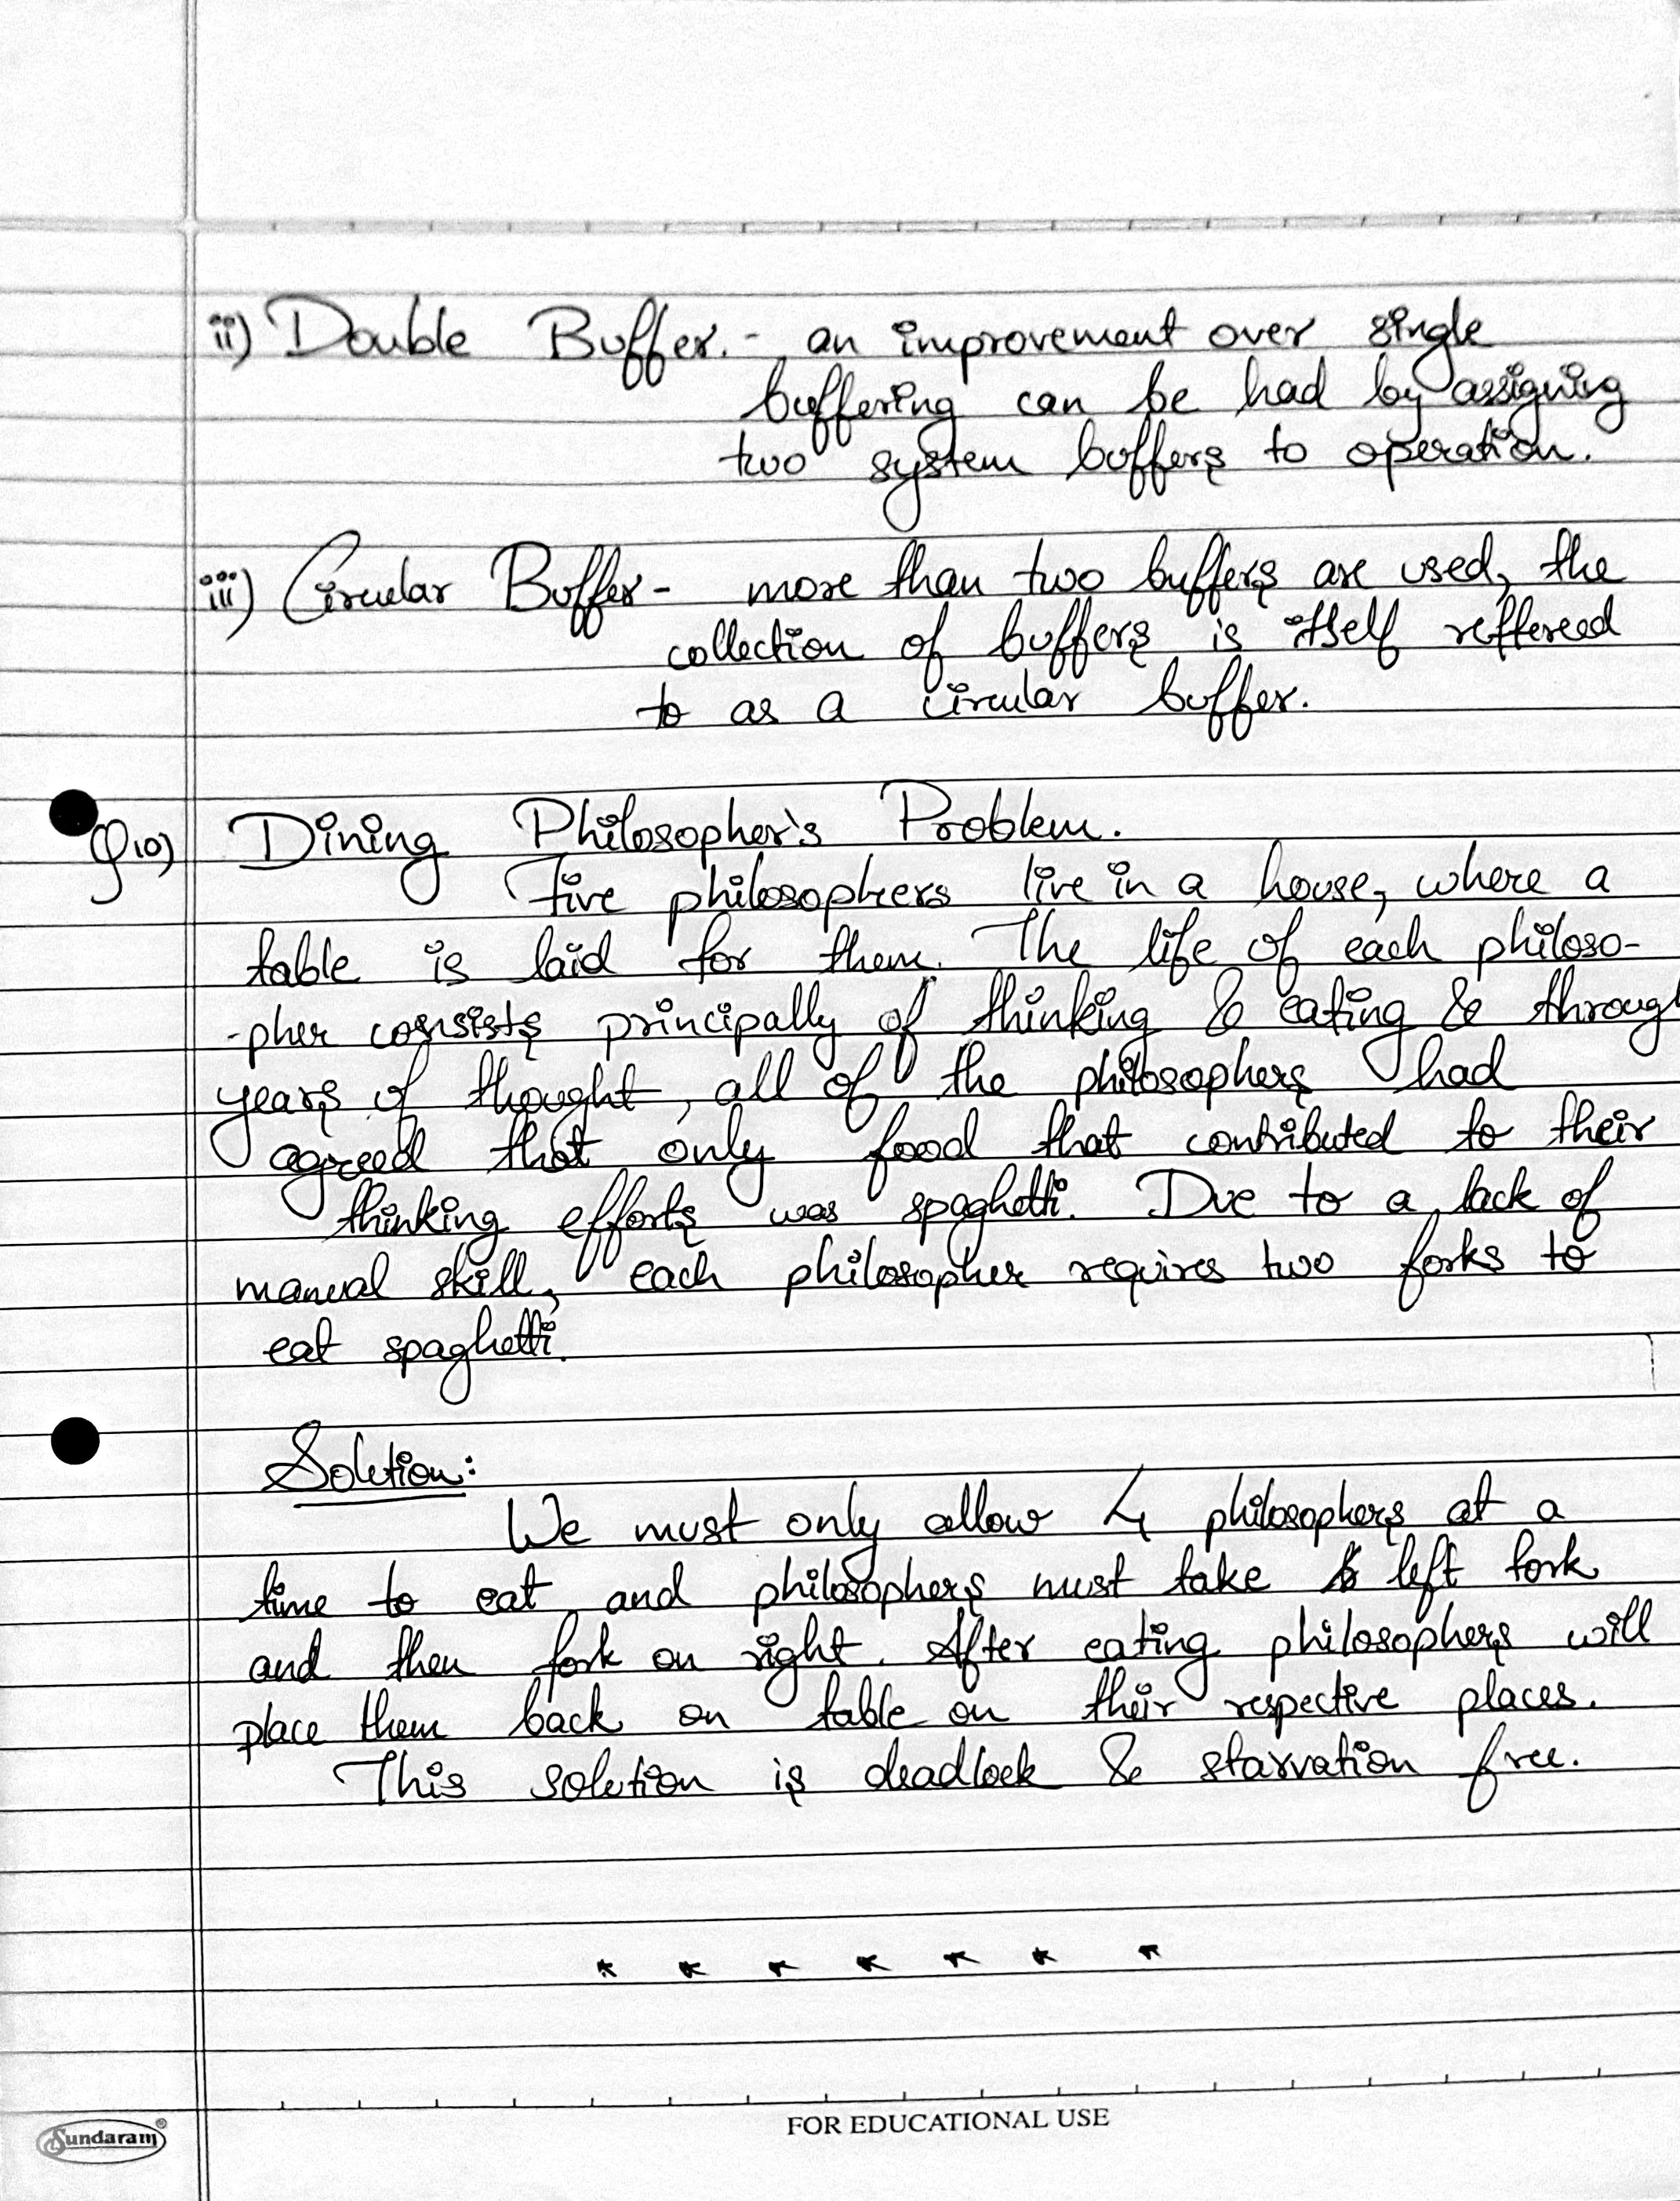 ii) Double Buffer. - an improvement over single
buffering can be had by assigning
two system buffers to operation.
iii) Circular Buffer - more than two buffers are used, the
collection of buffers is itself reffereed
to as a circular buffer.
Q10) Dining Philosopher's Problem.
Five philosophers live in a house, where a
table is laid for them. The life of each philoso-
-pher consists principally of thinking & eating & through
years of thought, all of the philosophers had
agreed that only food that contributed to their
thinking efforts was spaghetti. Due to a lack of
manual skill, each philosopher requires two forks to
eat spaghetti.
Solution:
We must only allow 4 philosophers at a
time to eat and philosophers must take left fork
and then fork on right. After eating philosophers will
place them back on table on their respective places.
This solution is deadlock & starvation free.
* * * * * * *
FOR EDUCATIONAL USE
Sundaram®